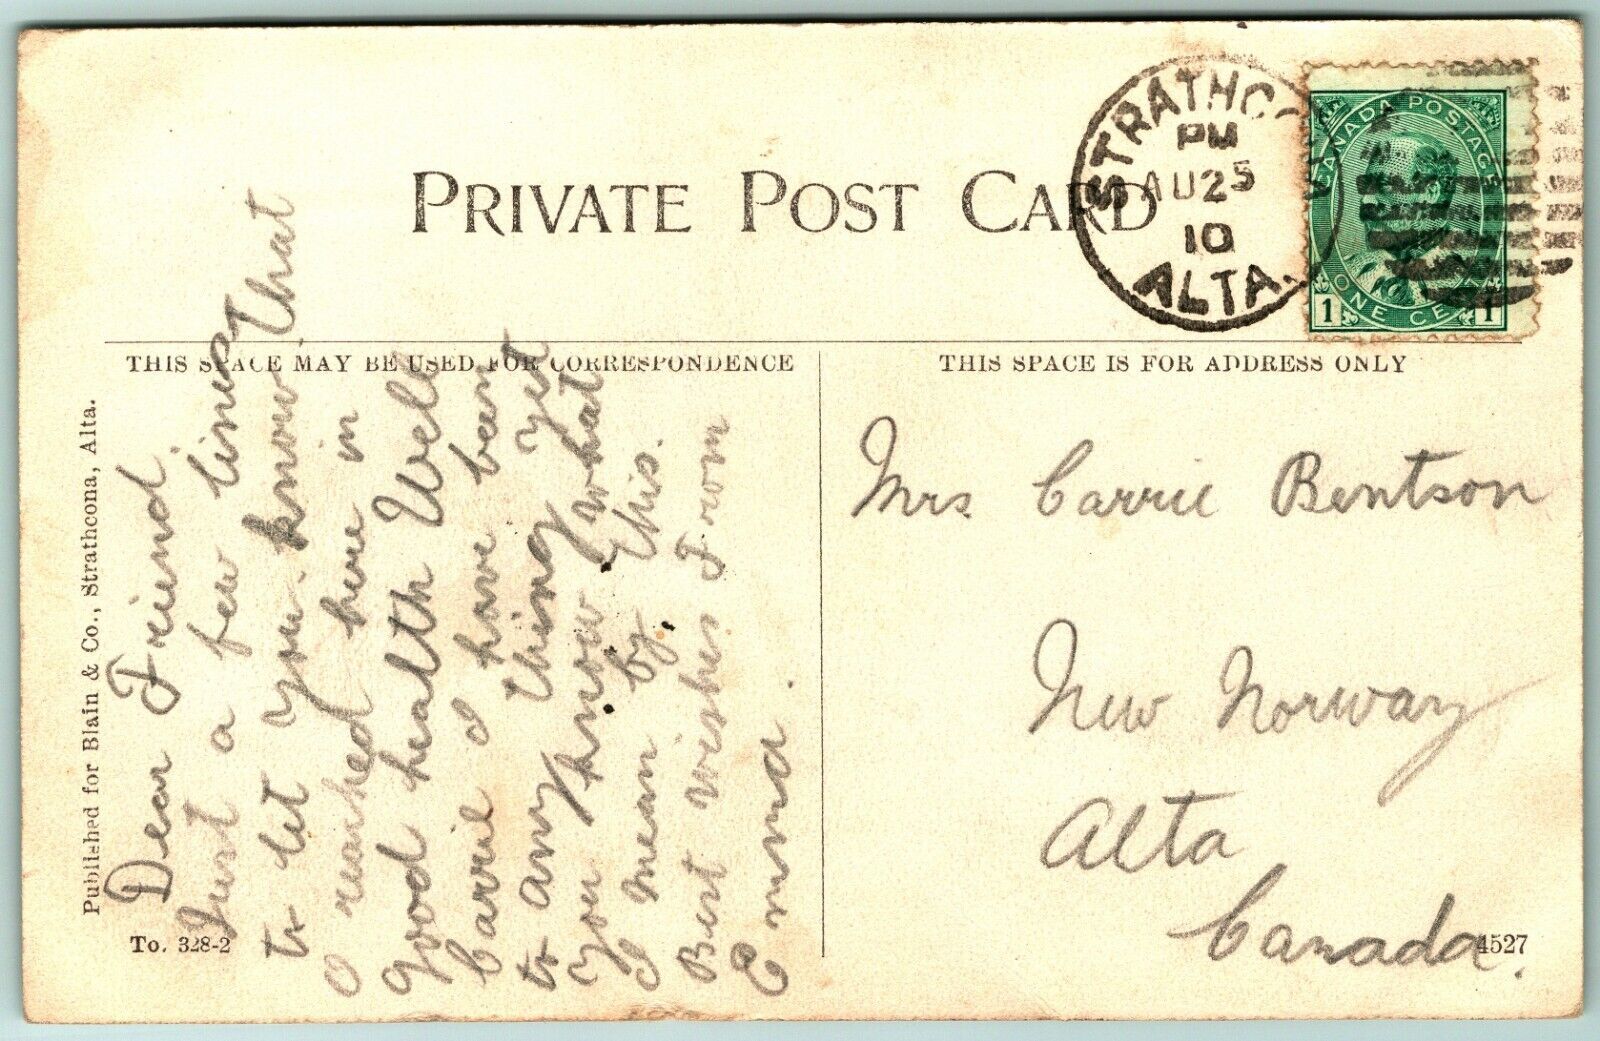 PRIVATE POST CARD
STRATHCO
PM
AU 25
10
ALTA.
CANADA POSTAGE
1 ONE CENT 1
THIS SPACE MAY BE USED FOR CORRESPONDENCE
THIS SPACE IS FOR ADDRESS ONLY
Published for Blain & Co., Strathcona, Alta.
Dear Friend.
Just a few lines
to let you know that
I reached here in
good health Well
Carrie I have been
to any thing yet
you know what
I mean by this.
Best wishes From
Emma.
Mrs Carrie Bentson
New Norway
Alta
Canada.
To. 328-2
4527